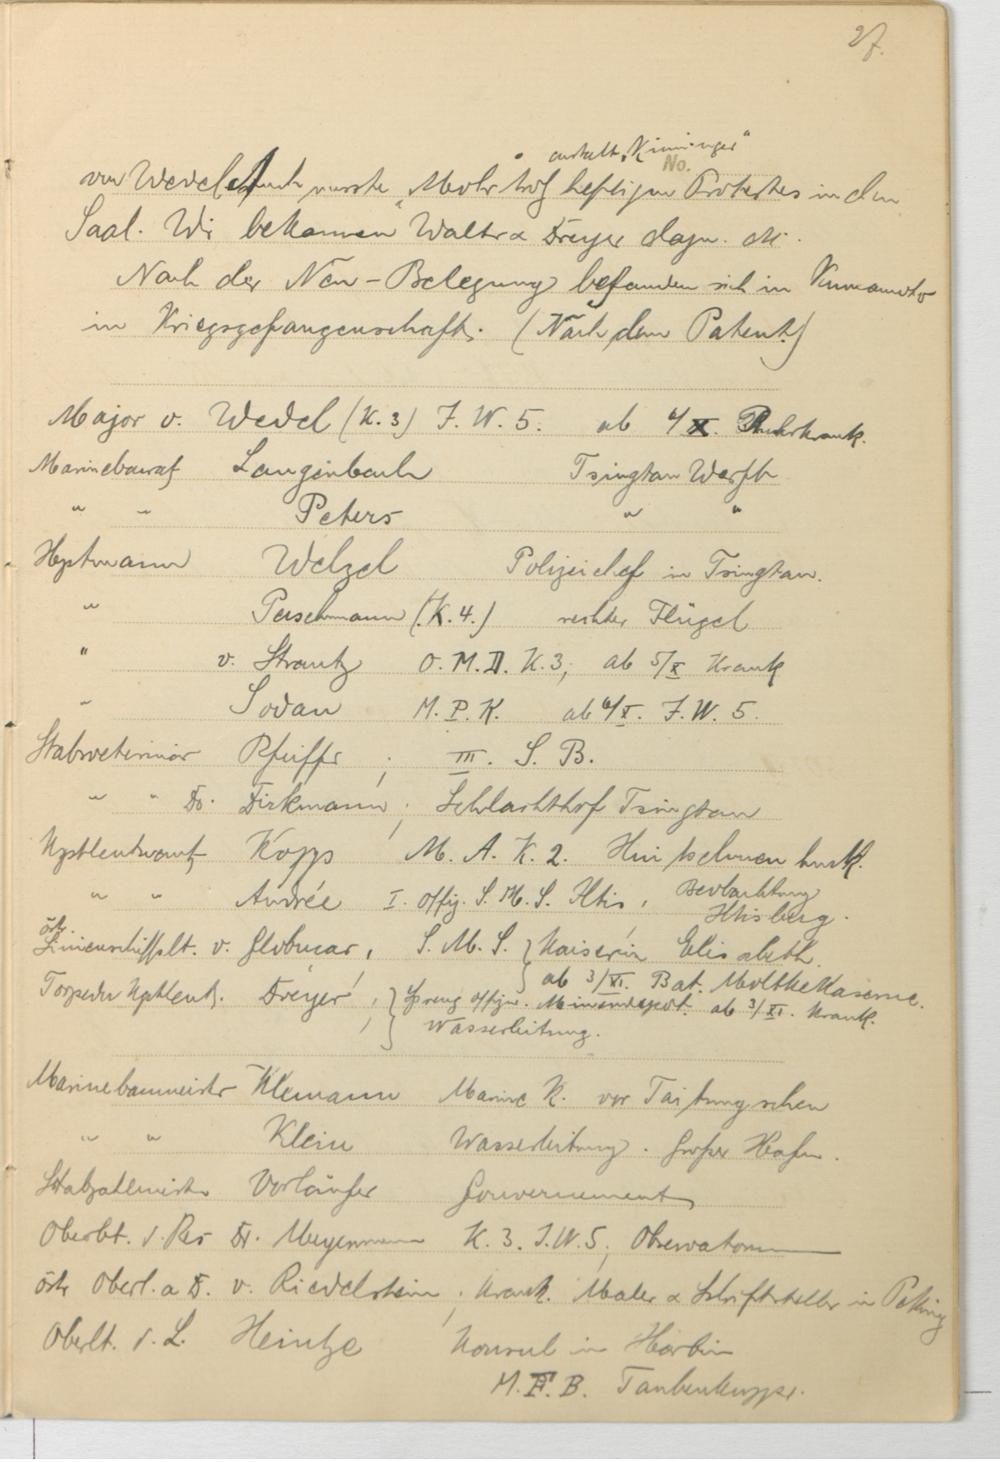 27.
anstalt „Kininger"
No.
von Wedelstädt musste „Mohr trotz heftigen Protestes in den
Saal. Wir bekamen Walter & Dreyer dazu.
Nach der Neu-Belegung befanden sich in Kumamoto
in Kriegsgefangenschaft. (Nach dem Patent)
Major v. Wedel (K. 3) J. W. 5. ab 4/X. Ruhrkrank.
Marinebaurat Langenbach Tsingtau Werft
" " Peters " "
Hptmann Welzel Polizeichef in Tsingtau.
" Perschmann (K. 4.) rechter Flügel
" v. Strantz O. M. D. K. 3, ab 5/X Krank
" Sodan M. P. K. ab 4/X. J. W. 5.
Stabsveterinär Pfeiffer ; III. S. B.
" " Dr. Dirkmann ; Schlachthof Tsingtau
Kptleutnant Kopp M. A. K. 2.
" " Andrée I. Offiz. S. M. S. Iltis, Beobachtung
Iltisberg.
östr.
Linienschiffslt. v. Globucar, S. M. S. } Kaiserin Elisabeth.
} ab 3/XI. Bat. Moltkekaserne.
Torpedo Kptleut. Dreyer, } Spreng offizier. Minendepot. ab 3/XI. Krank.
} Wasserleitung.
Marinebaumeister Klemann Marine K. vor Taitungschen
" " Klein Wasserleitung. Großer Hafen.
Stabzahlmeister Vorläufer Gouvernement
Oberlt. d. Res Dr. Meyermann K. 3. J. W. 5, Observatorium
östr Oberl. a D. v. Riedelstein ; Krank. Maler & Schriftsteller in Peking
Oberlt. d. L. Heintze Konsul in Harbin
M. F. B. Taubenkuppe.